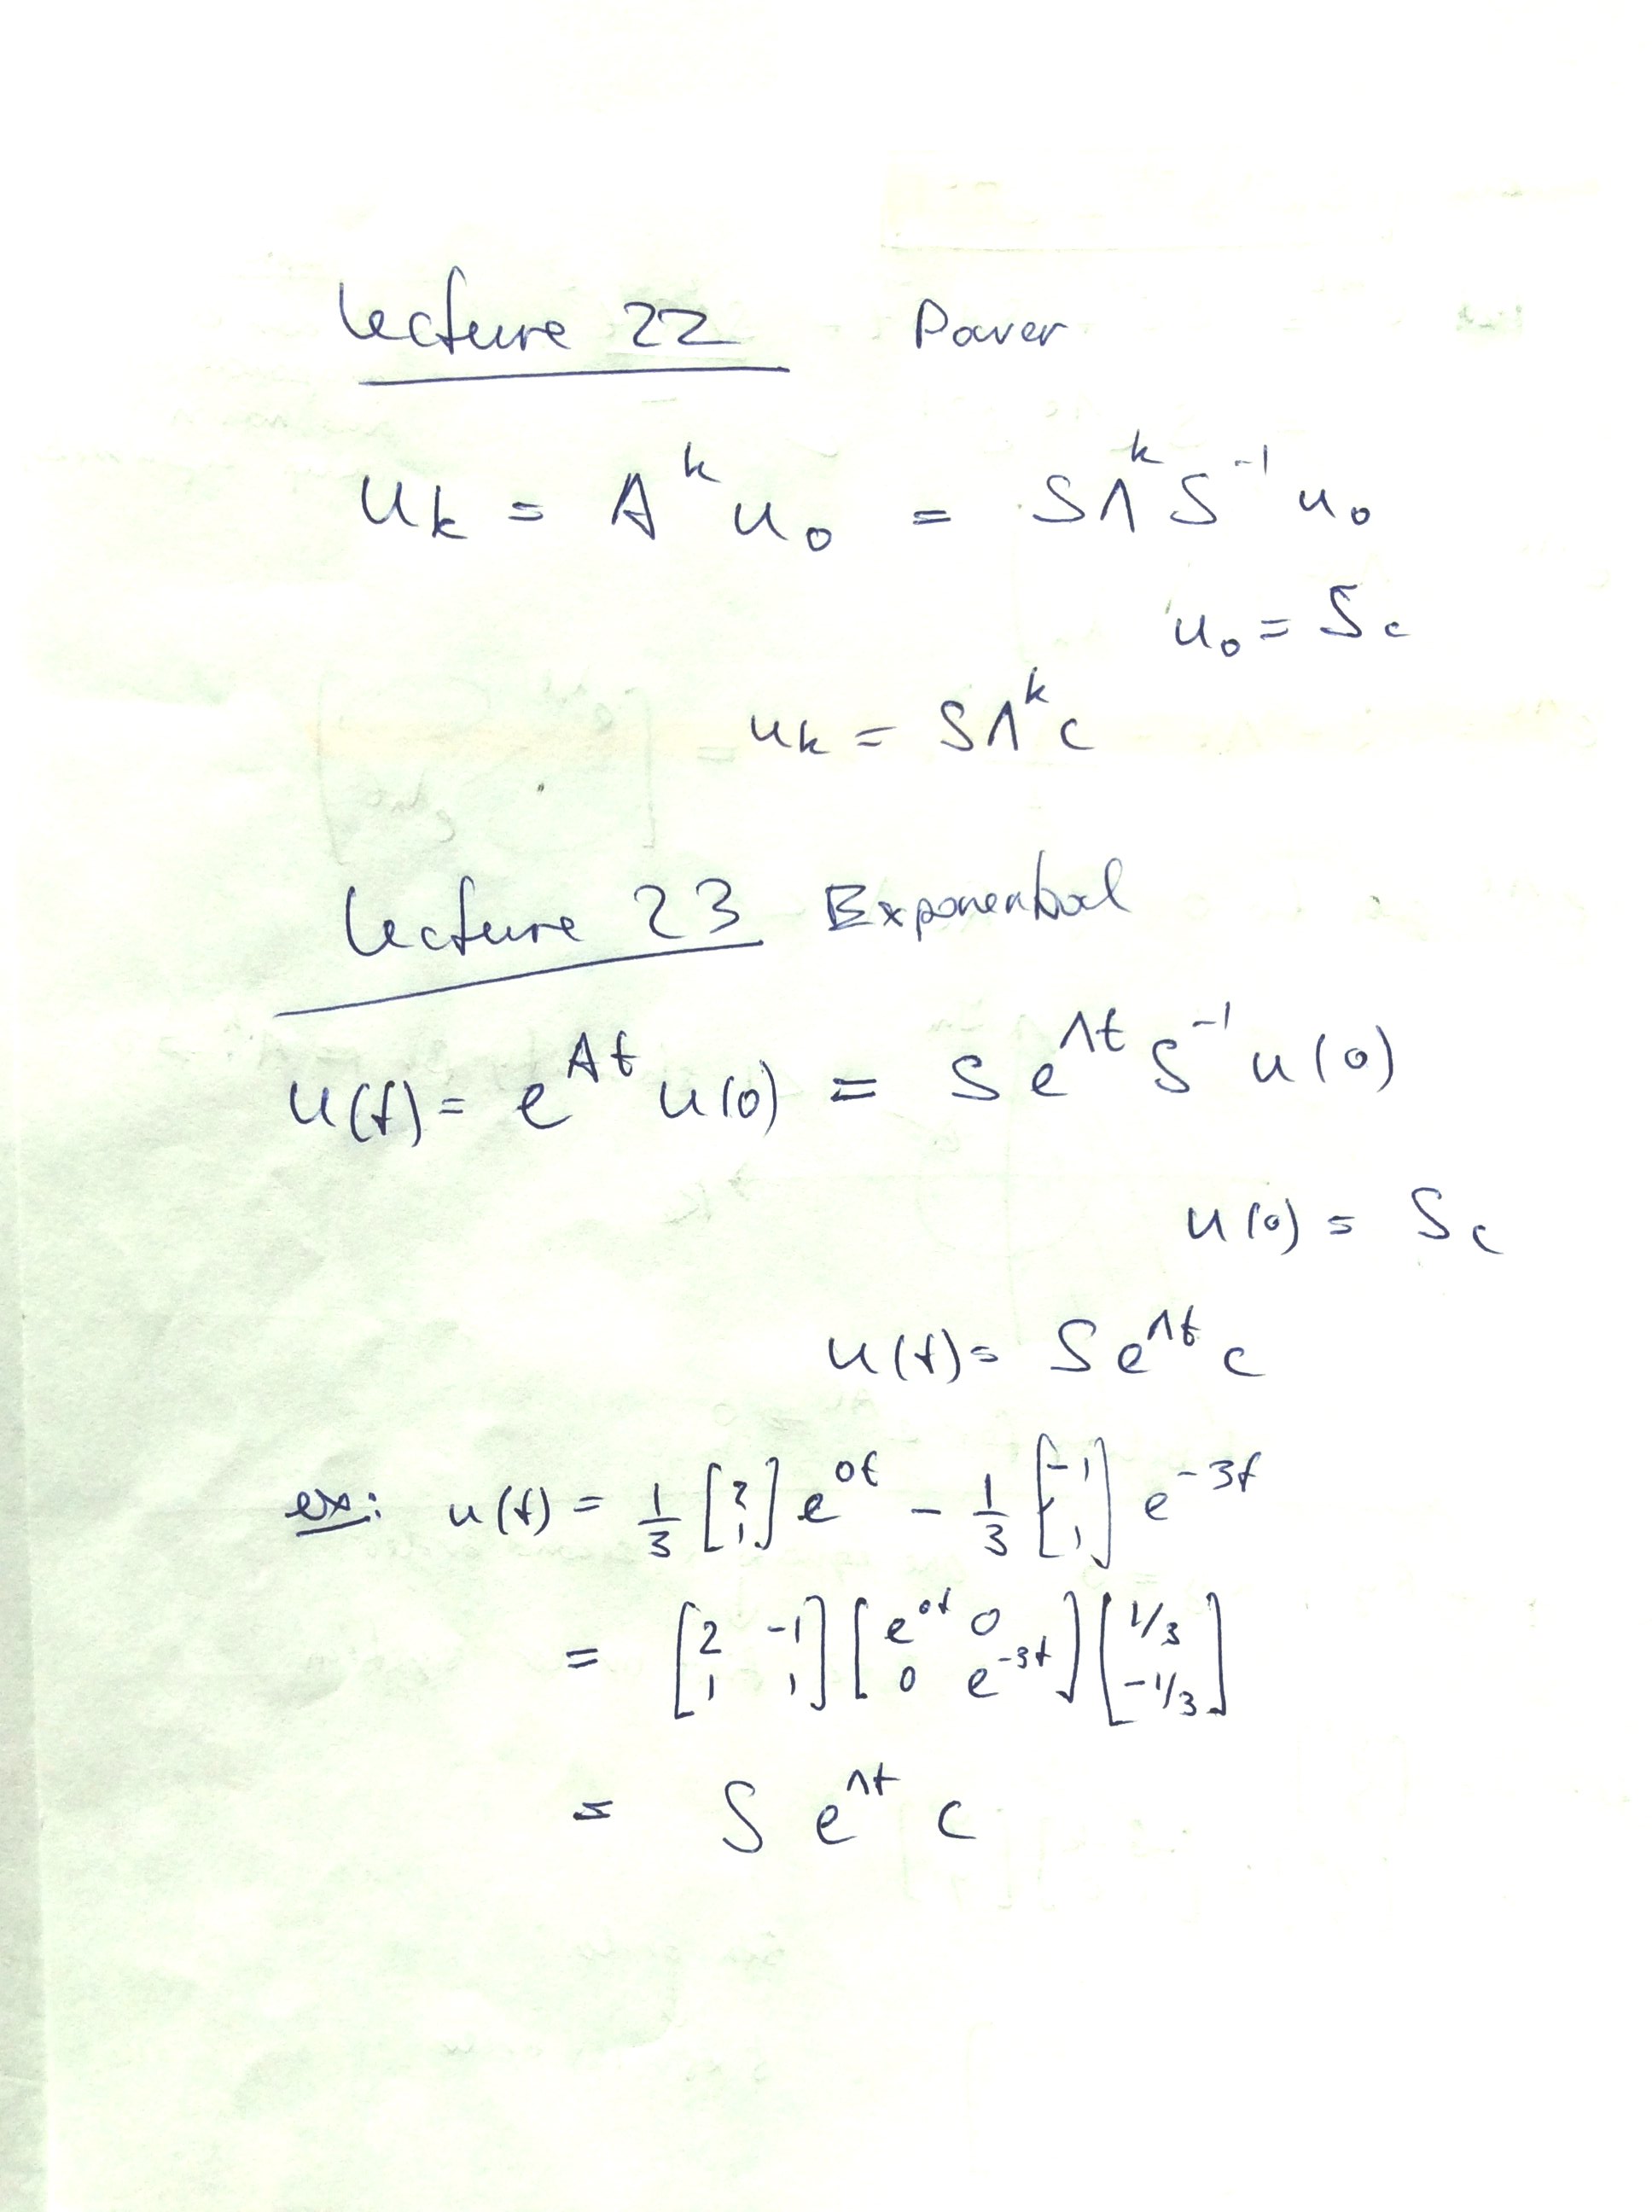 Lecture 22 Power
u_k = A^k u_0 = SΛ^k S^-1 u_0
u_0 = Sc
u_k = SΛ^k c
Lecture 23 Exponential
u(t) = e^At u(0) = S e^Λt S^-1 u(0)
u(0) = Sc
u(t) = S e^Λt c
ex: u(t) = 1/3 [2 1] e^0t - 1/3 [-1 1] e^-3t
= [2 -1; 1 1] [e^0t 0; 0 e^-3t] [1/3; -1/3]
= S e^Λt c